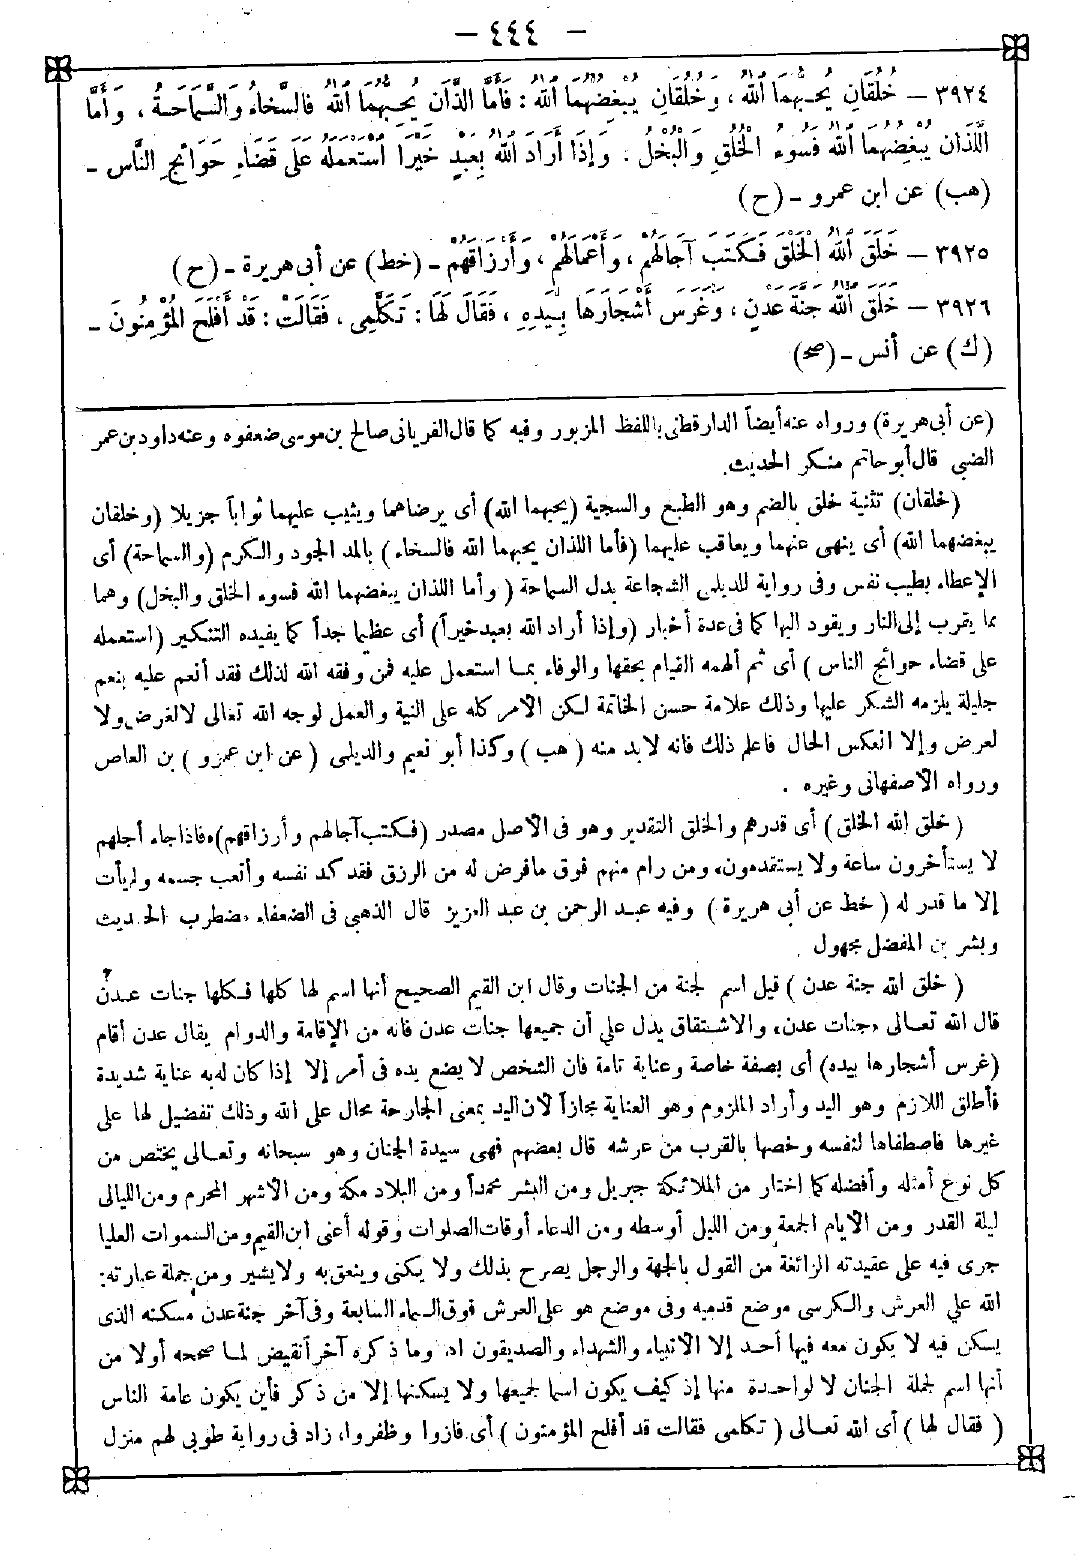 – ٤٤٤ –
٣٩٢٤ – خُلُقَانِ يُحِبُّهُمَا اللهُ ، وَخُلُقَانِ يُبْغِضُهُمَا اللهُ : فَأَمَّا اللَّذَانِ يُحِبُّهُمَا اللهُ فَالسَّخَاءُ وَالسَّمَاحَةُ ، وَأَمَّا
اللَّذَانِ يُبْغِضُهُمَا اللهُ فَسُوءُ الْخُلُقِ وَالْبُخْلُ . وَإِذَا أَرَادَ اللهُ بِعَبْدٍ خَيْرًا اسْتَعْمَلَهُ عَلَى قَضَاءِ حَوَائِجِ النَّاسِ –
(هب) عن ابن عمرو – (ح)
٣٩٢٥ – خَلَقَ اللهُ الْخَلْقَ فَكَتَبَ آجَالَهُمْ ، وَأَعْمَالَهُمْ ، وَأَرْزَاقَهُمْ – (خط) عن أبى هريرة – (ح)
٣٩٢٦ – خَلَقَ اللهُ جَنَّةَ عَدْنٍ ، وَغَرَسَ أَشْجَارَهَا بِيَدِهِ ، فَقَالَ لَهَا : تَكَلَّمِى ، فَقَالَتْ : قَدْ أَفْلَحَ الْمُؤْمِنُونَ –
(ك) عن أنس – (صح)
(عن أبى هريرة) ورواه عنه أيضاً الدارقطنى باللفظ المزبور وفيه كما قال الغريانى صالح بن موسى ضعفوه وعنه داود بن عمر
الضبى قال أبو حاتم منكر الحديث.
(خلقان) تثنية خلق بالضم وهو الطبع والسجية (يحبهما الله) أى يرضاهما ويثيب عليهما ثواباً جزيلا (وخلقان
يبغضهما الله) أى ينهى عنهما ويعاقب عليهما (فأما اللذان يحبهما الله فالسخاء) بالمد الجود والكرم (والسماحة) أى
الإعطاء بطيب نفس وفى رواية للديلى الشجاعة بدل السماحة ( وأما اللذان يبغضهما الله فسوء الخلق والبخل) وهما
مما يقرب إلى النار ويقود اليها كما فى عدة أخبار (وإذا أراد الله بعبد خيراً) أى عظيما جداً كما يفيده التنكير (استعمله
على قضاء حوائج الناس ) أى ثم ألهمه القيام بحقها والوفاء بما استعمل عليه فمن وفقه الله لذلك فقد أنعم عليه بنعم
جليلة يلزمه الشكر عليها وذلك علامة حسن الخاتمة لكن الأمر كله على النية والعمل لوجه الله تعالى لالغرض ولا
لعرض وإلا انعكس الحال فاعلم ذلك فانه لابد منه ( هب ) وكذا أبو نعيم والديلمى ( عن ابن عمرو ) بن العاص
ورواه الأصفهانى وغيره .
( خلق الله الخلق ) أى قدرهم والخلق التقدير وهو فى الأصل مصدر (فكتب آجالهم وأرزاقهم) «فاذا جاء أجلهم
لا يستأخرون ساعة ولا يستقدمون» ومن رام منهم فوق مافرض له من الرزق فقد كد نفسه وأتعب جسمه ولم يأت
إلا ما قدر له ( خط عن أبى هريرة ) وفيه عبد الرحمن بن عبد العزيز قال الذهبى فى الضعفاء مضطرب الحديث
وبشر بن المفضل مجهول .
( خلق الله جنة عدن ) قيل اسم لجنة من الجنات وقال ابن القيم الصحيح أنها اسم لها كلها فكلها جنات عدن
قال الله تعالى «جنات عدن» والاشتقاق يدل على أن جميعها جنات عدن فانه من الإقامة والدوام يقال عدن أقام
(غرس أشجارها بيده) أى بصفة خاصة وعناية تامة فان الشخص لا يضع يده فى أمر إلا إذا كان له به عناية شديدة
فأطلق اللازم وهو اليد وأراد الملزوم وهو العناية مجازاً لأن اليد بمعنى الجارحة محال على الله وذلك تفضيل لها على
غيرها فاصطفاها لنفسه وخصها بالقرب من عرشه قال بعضهم فهى سيدة الجنان وهو سبحانه وتعالى يختص من
كل نوع أمثله وأفضله كما اختار من الملائكة جبريل ومن البشر محمداً ومن البلاد مكة ومن الأشهر المحرم ومن الليالى
ليلة القدر ومن الأيام الجمعة ومن الليل أوسطه ومن الدعاء أوقات الصلوات وقوله أعنى ابن القيم ومن السموات العليا
جرى فيه على عقيدته الزائغة من القول بالجهة والرجل يصرح بذلك ولا يكنى وينعق به ولا يشير ومن جملة عبارته:
الله على العرش والكرسى موضع قدميه وفى موضع هو على العرش فوق السماء السابعة وفى آخر جنة عدن مسكنه الذى
يسكن فيه لا يكون معه فيها أحد إلا الأنبياء والشهداء والصديقون اه وما ذكره آخر أنقيض لما صححه أولا من
أنها اسم لجملة الجنان لا لواحدة منها إذ كيف يكون اسما لجميعها ولا يسكنها إلا من ذكر فأين يكون عامة الناس
( فقال لها ) أى الله تعالى ( تكلمى فقالت قد أفلح المؤمنون ) أى فازوا وظفروا، زاد فى رواية طوبى لهم منزل